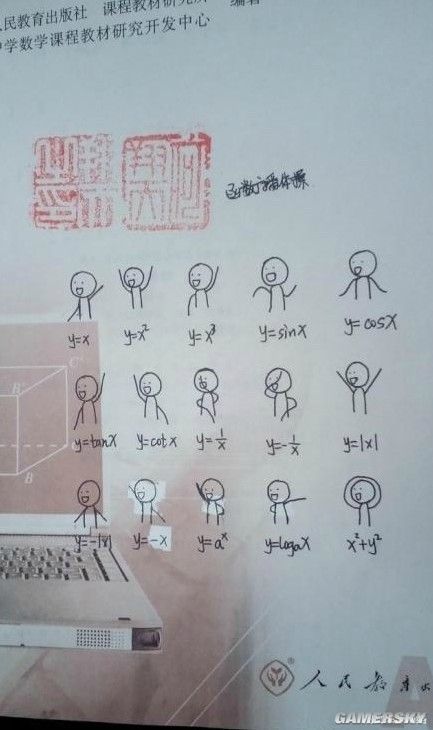 人民教育出版社 课程教材研究所 编著
中学数学课程教材研究开发中心
函数广播体操
y=x y=x² y=x³ y=sinx y=cosx
y=tanx y=cotx y=1/x y=-1/x y=|x|
y=-|x| y=-x y=aˣ y=logax x²+y²
C'
B'
B
人民教育出
GAMERSKY